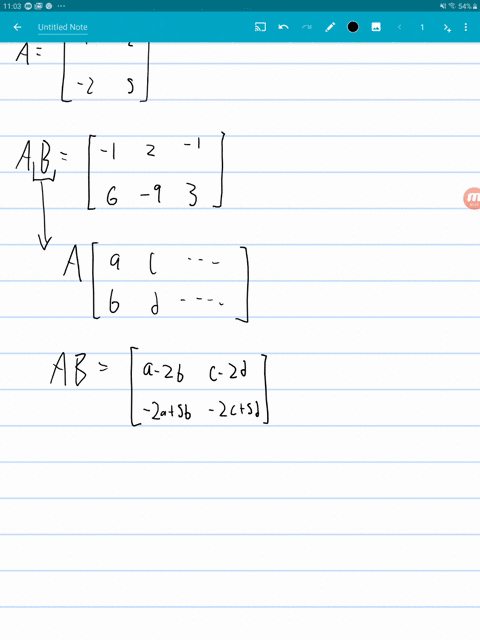 11:03 54%
Untitled Note 1
A =
-2 5
AB = [ -1 2 -1
6 -9 3 ]
A [ a c ...
b d .... ]
AB = [ a-2b c-2d
-2a+5b -2c+5d ]